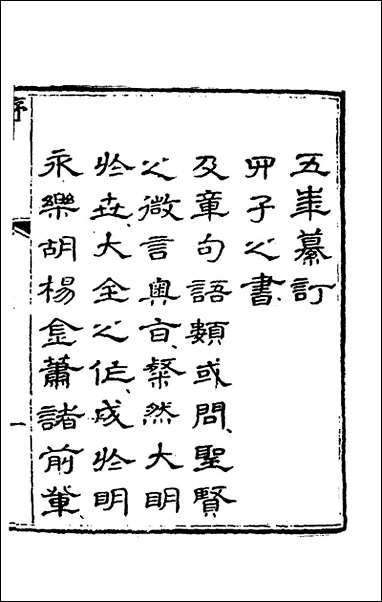 五年纂訂
四子之書
及章句語類或問聖賢
之微言奧㫖粲然大明
於世大全之作成於明
永樂胡楊金蕭諸前輩
序
一